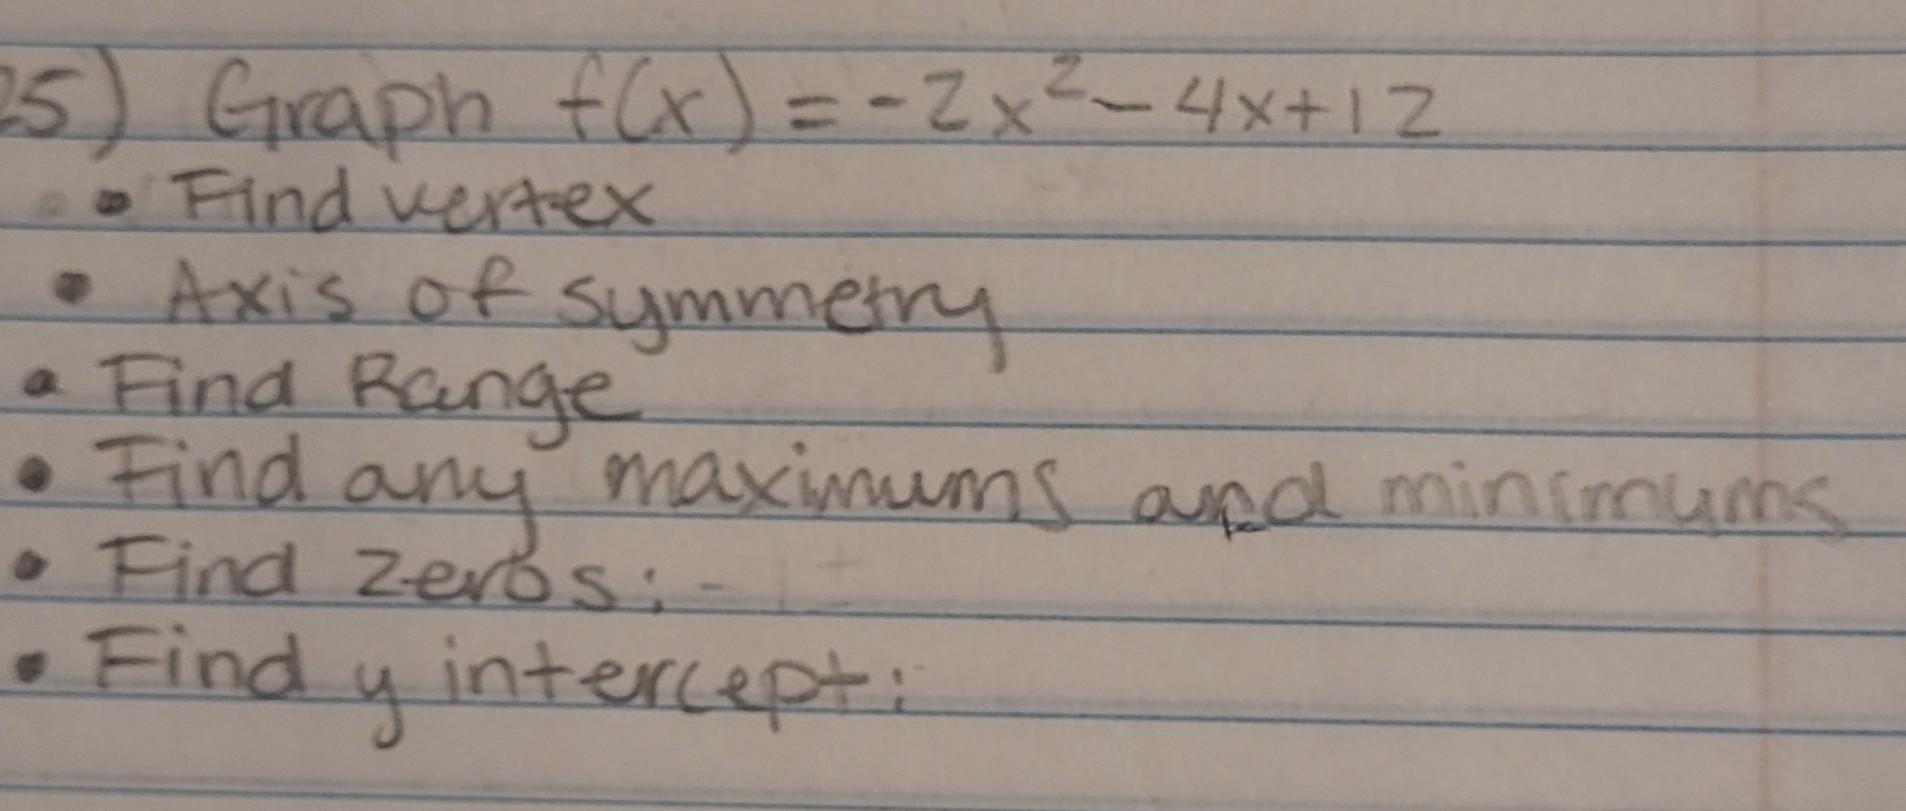 25) Graph f(x) = -2x² - 4x + 12
• Find vertex
• Axis of symmetry
• Find Range
• Find any maximums and minimums
• Find zeros: -
• Find y intercept: